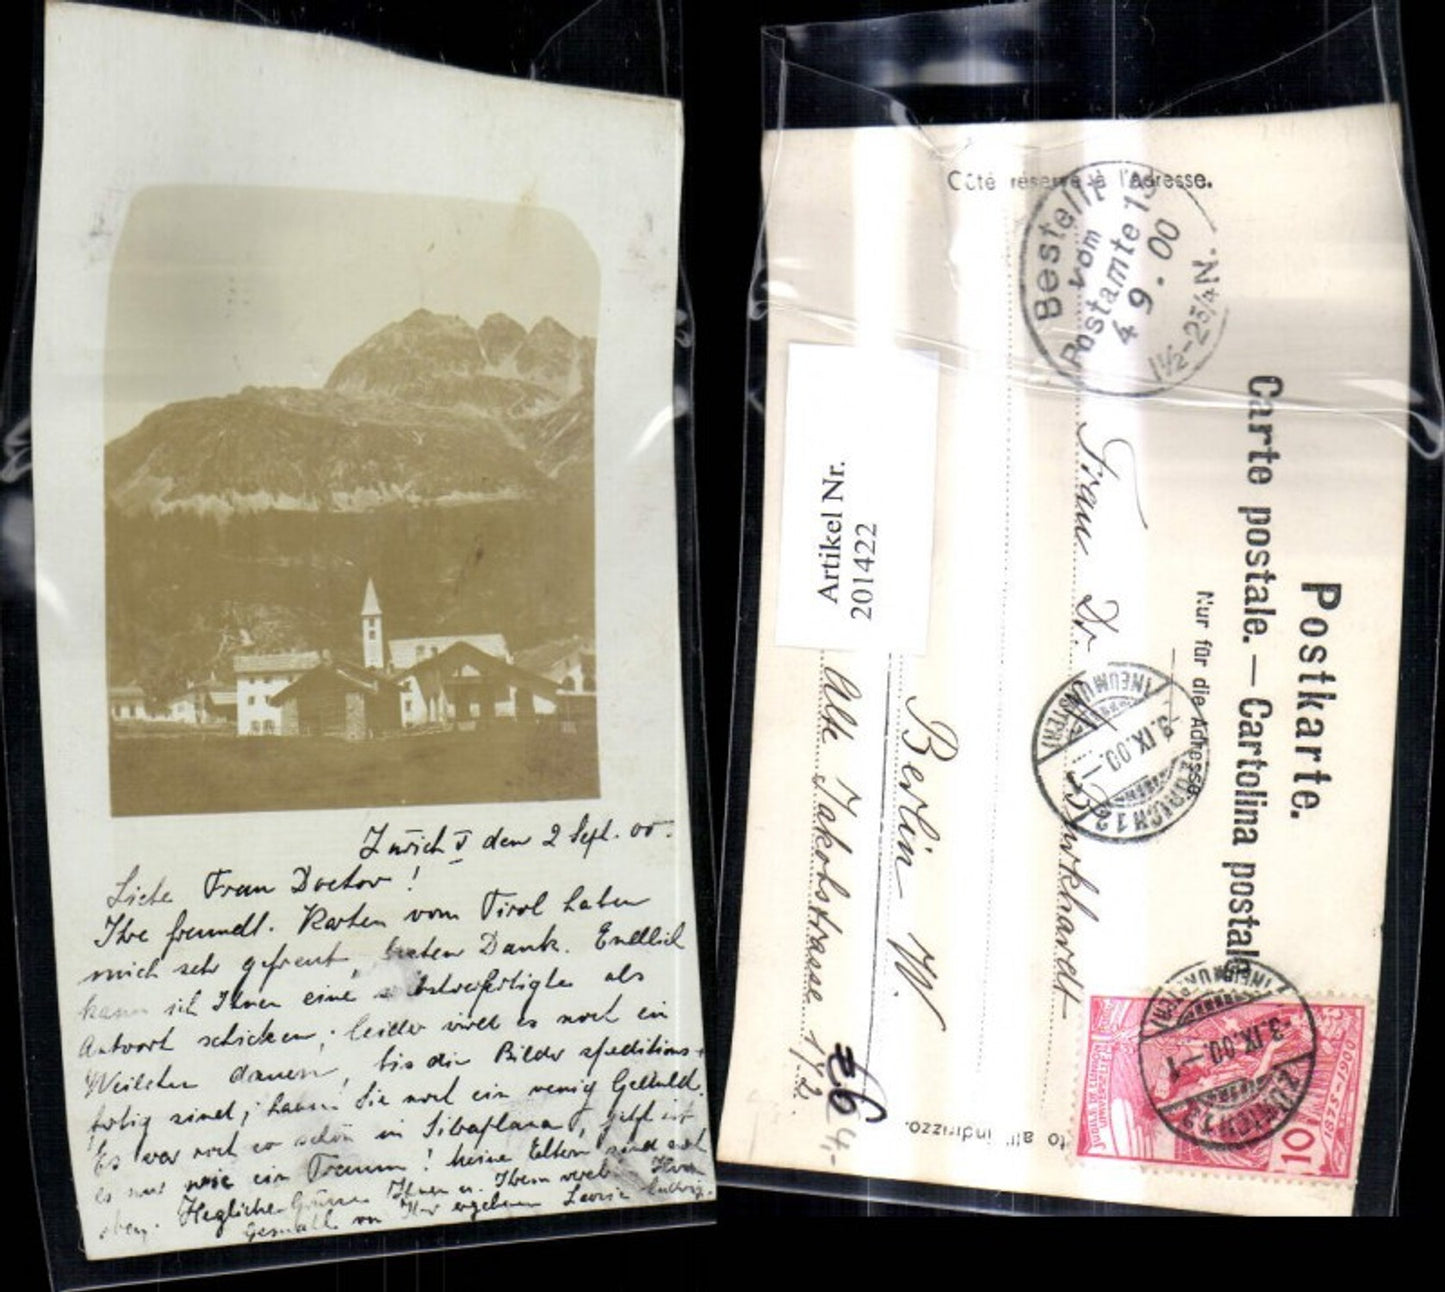 Zürich V den 2 Sept. 00.
Liebe Frau Doctor!
Ihre freundl. Karten vom Tirol haben
mich sehr gefreut, besten Dank. Endlich
kann ich Ihnen eine selbstverfertigte als
Antwort schicken; leider wird es noch ein
Weilchen dauern, bis die Bilder speditions-
fertig sind; haben Sie noch ein wenig Geduld.
Es war noch so schön in Silvaplana, jetzt ist
es nur wie ein Traum! Meine Eltern sind noch
oben. Herzliche Grüsse Ihnen u. Ihrem
Gemahl von Ihrer ergebenen
Côté réservé à l'Adresse.
Bestellt
vom
Postamte 13
4 9. 00
1½-2¾N.
Postkarte.
Carte postale. — Cartolina postale.
Nur für die Adresse.
Frau Dr. Burkhardt
Berlin W.
Alte Jakobstrasse 172.
Artikel Nr.
201422
ZÜRICH 12
-3.IX.00.-1
(NEUMÜNSTER)
ZÜRICH 12
-3.IX.00.-1
(NEUMÜNSTER)
JUBILÉ DE L'UNION
POSTALE UNIVERSELLE
1875-1900
10
to all'indirizzo.